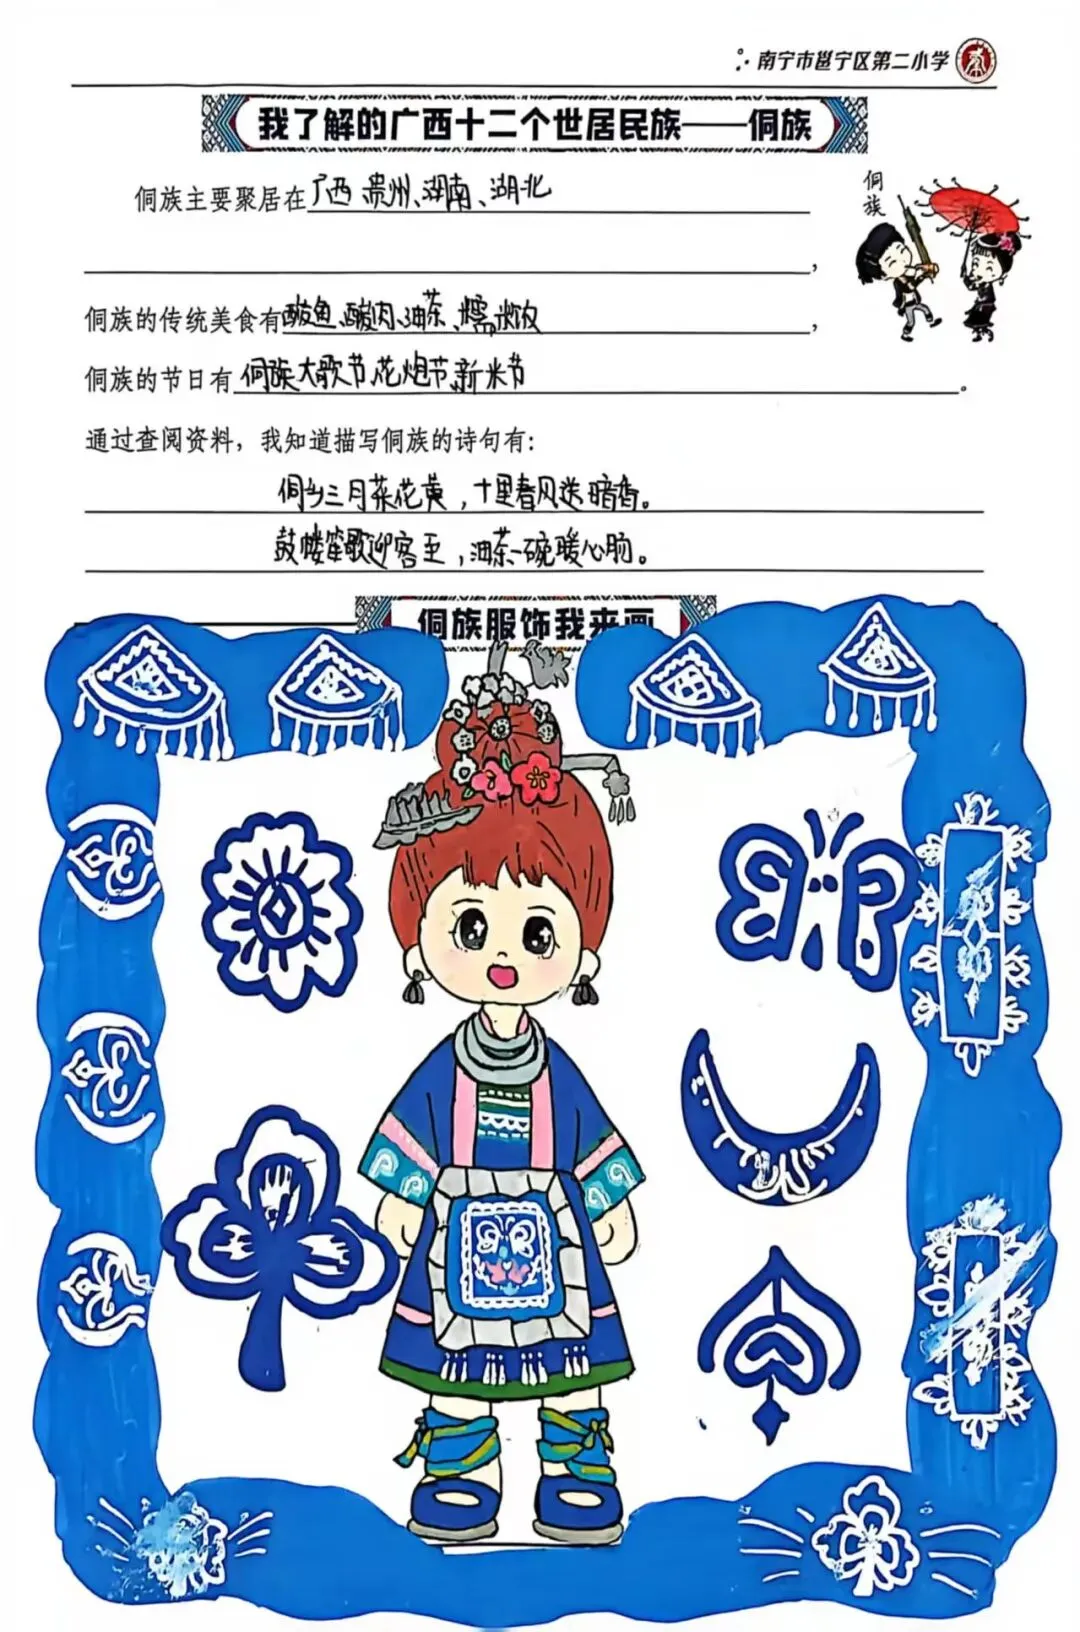 南宁市邕宁区第二小学
我了解的广西十二个世居民族——侗族
侗族
侗族主要聚居在广西 贵州、湖南、湖北
，
侗族的传统美食有酸鱼、酸肉、油茶、糯米饭，
侗族的节日有侗族大歌节、花炮节、新米节。
通过查阅资料，我知道描写侗族的诗句有：
侗乡三月菜花黄，十里春风送暗香。
鼓楼笙歌迎客至，油茶一碗暖心肠。
侗族服饰我来画